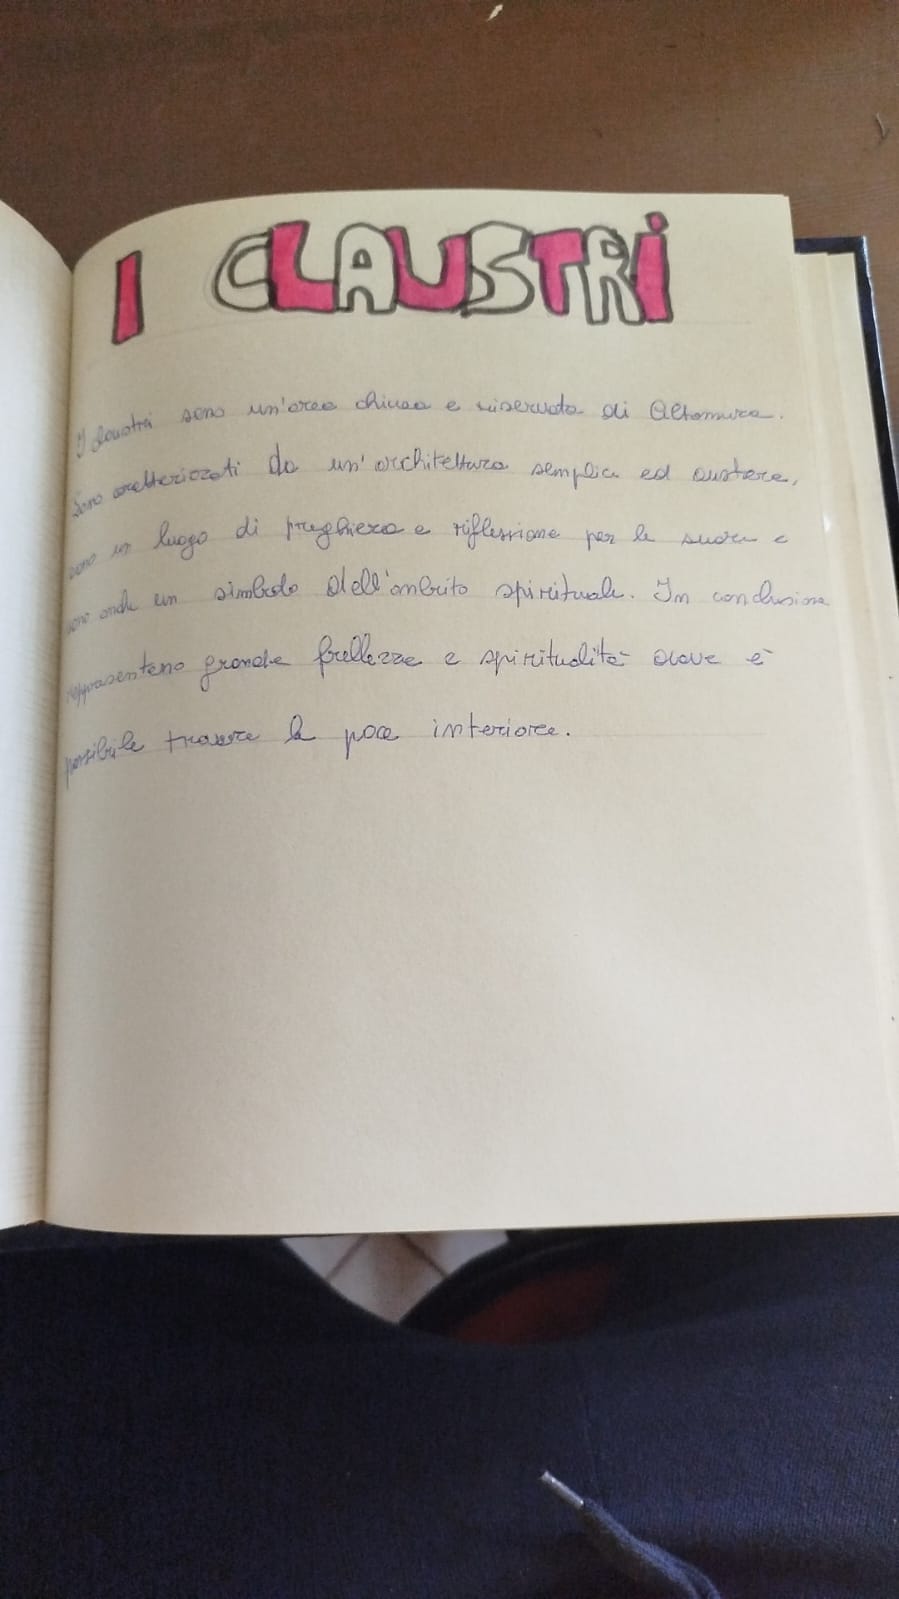 I CLAUSTRI
I claustri sono un'area chiusa e riservata di Altamura.
Sono caratterizzati da un'architettura semplice ed austera,
sono un luogo di preghiera e riflessione per le suore e
sono anche un simbolo dell'ambito spirituale. In conclusione
rappresentano grande bellezza e spiritualità dove è
possibile trovare la pace interiore.